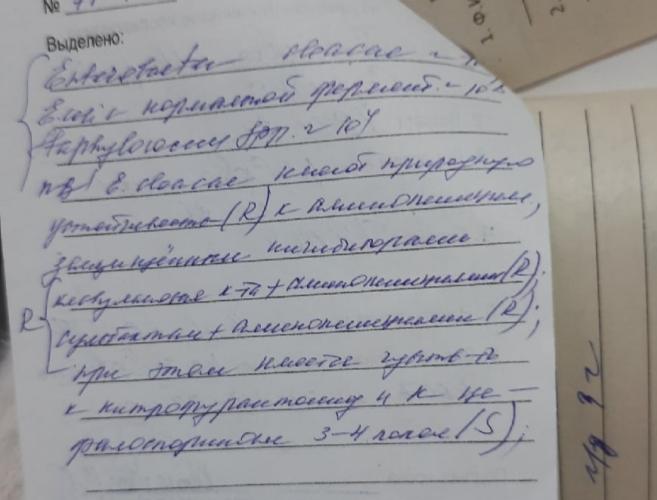 №
Выделено:
Enterobacter cloacae ~ 10
E. coli с нормальной фермент. ~ 10
Staphylococcus spp. ~ 10⁴
E. cloacae имеет природную
устойчивость (R) к аминопеницил,
защищённым ингибиторами:
R клавулановая к-та + аминопенициллин (R);
сульбактам + аминопенициллин (R);
при этом имеется чувств-ть
к нитрофурантоину и к це-
фалоспоринам 3-4 покол (S);
1. Ф.И
2.